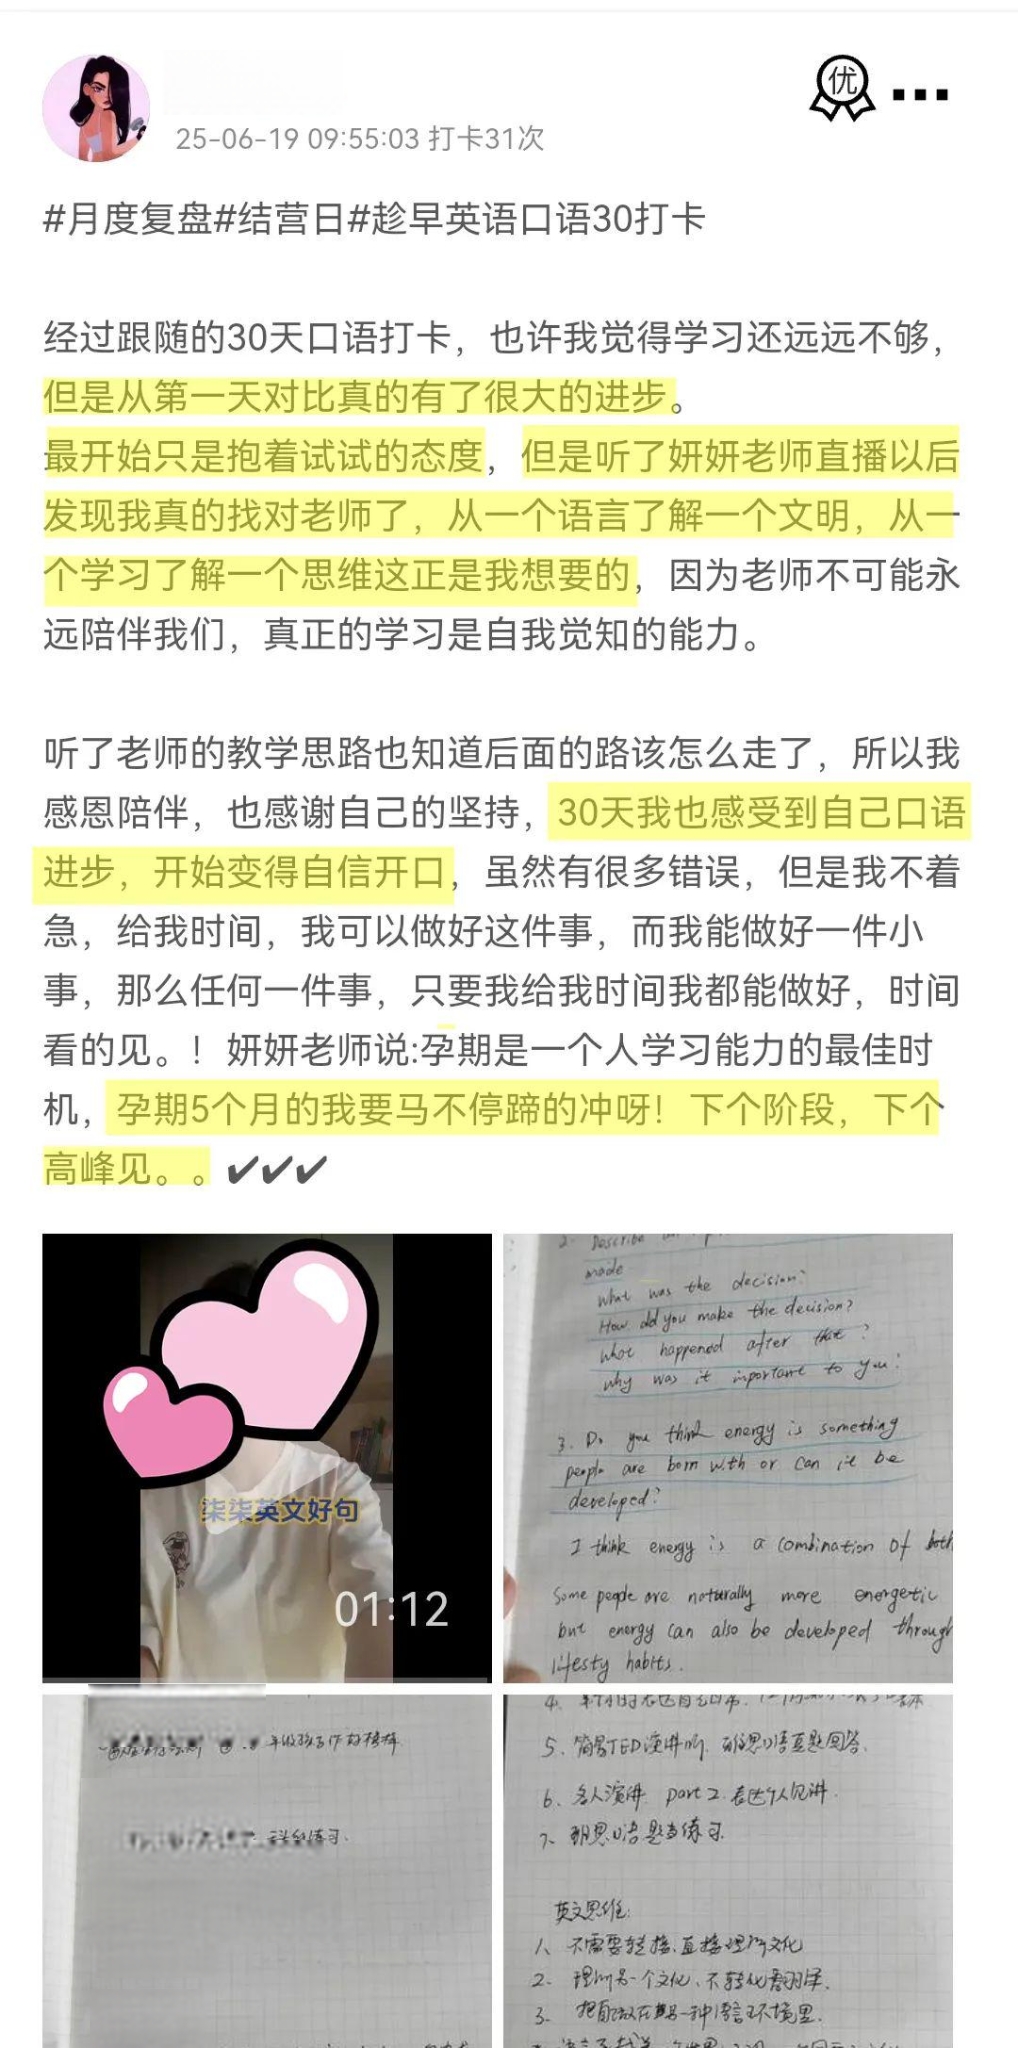 优
25-06-19 09:55:03 打卡31次
#月度复盘#结营日#趁早英语口语30打卡
经过跟随的30天口语打卡，也许我觉得学习还远远不够，
但是从第一天对比真的有了很大的进步。
最开始只是抱着试试的态度，但是听了妍妍老师直播以后
发现我真的找对老师了，从一个语言了解一个文明，从一
个学习了解一个思维这正是我想要的，因为老师不可能永
远陪伴我们，真正的学习是自我觉知的能力。
听了老师的教学思路也知道后面的路该怎么走了，所以我
感恩陪伴，也感谢自己的坚持，30天我也感受到自己口语
进步，开始变得自信开口，虽然有很多错误，但是我不着
急，给我时间，我可以做好这件事，而我能做好一件小
事，那么任何一件事，只要我给我时间我都能做好，时间
看的见。！妍妍老师说:孕期是一个人学习能力的最佳时
机，孕期5个月的我要马不停蹄的冲呀！下个阶段，下个
高峰见。。✔✔✔
柒柒英文好句
01:12
2. Describe
made
What was the decision?
How did you make the decision?
What happened after that?
why was it important to you?
3. Do you think energy is something
people are born with or can it be
developed?
I think energy is a combination of both
Some people are naturally more energetic
but energy can also be developed through
lifesty habits.
练习.
5. 简易TED演讲 雅思口语真题回答.
6. 名人演讲 part 2. 表达个人见讲.
7. 雅思口语题当练习.
英文思维:
1、不需要转换、直接理解文化
2. 理解另一个文化、不转化翻译.
3. 把自己放在另一种语言环境里.